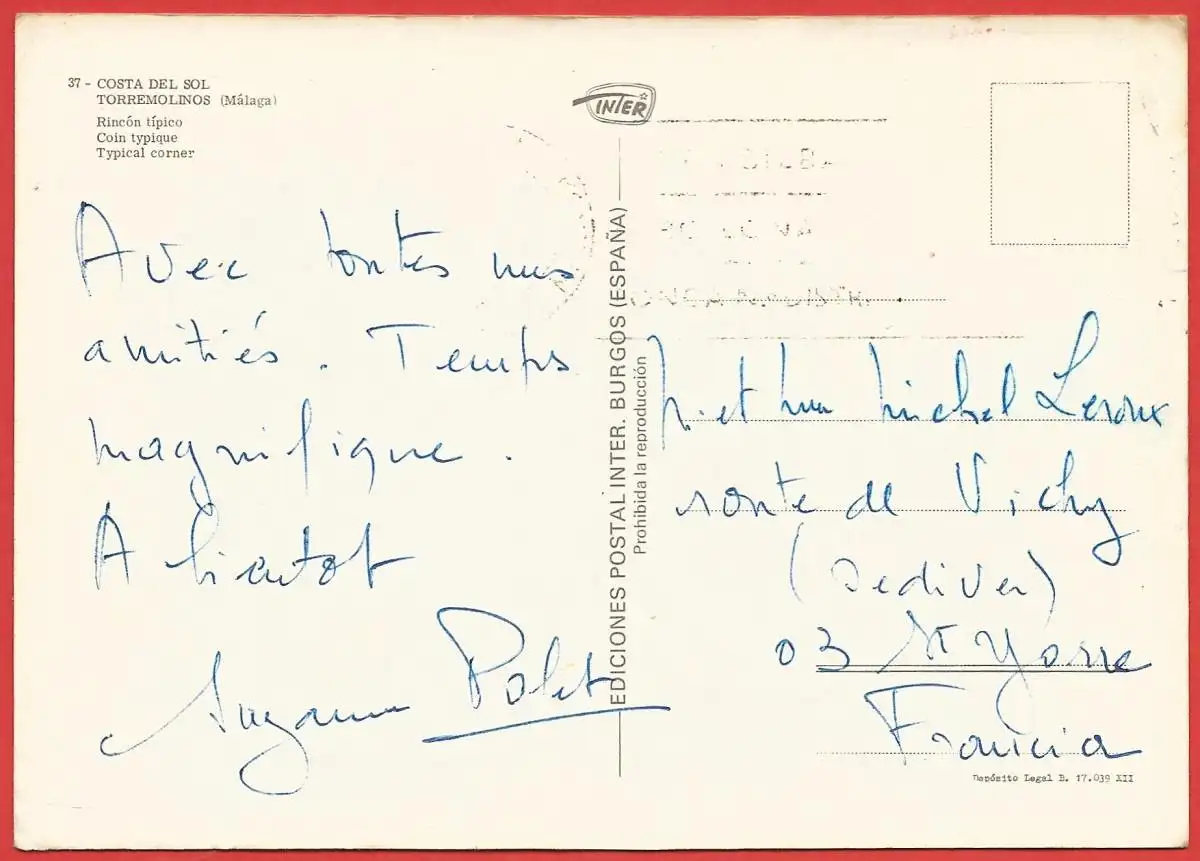 37 - COSTA DEL SOL
TORREMOLINOS (Málaga)
Rincón típico
Coin typique
Typical corner
INTER
Avec toutes nos
amitiés. Temps
magnifique.
A bientot
Suzanne Polet
EDICIONES POSTAL INTER. BURGOS (ESPAÑA)
Prohibida la reproducción
M. et Mme Michel Leroux
route de Vichy
(Sediver)
03 St Yorre
Francia
Depósito Legal B. 17.039 XII